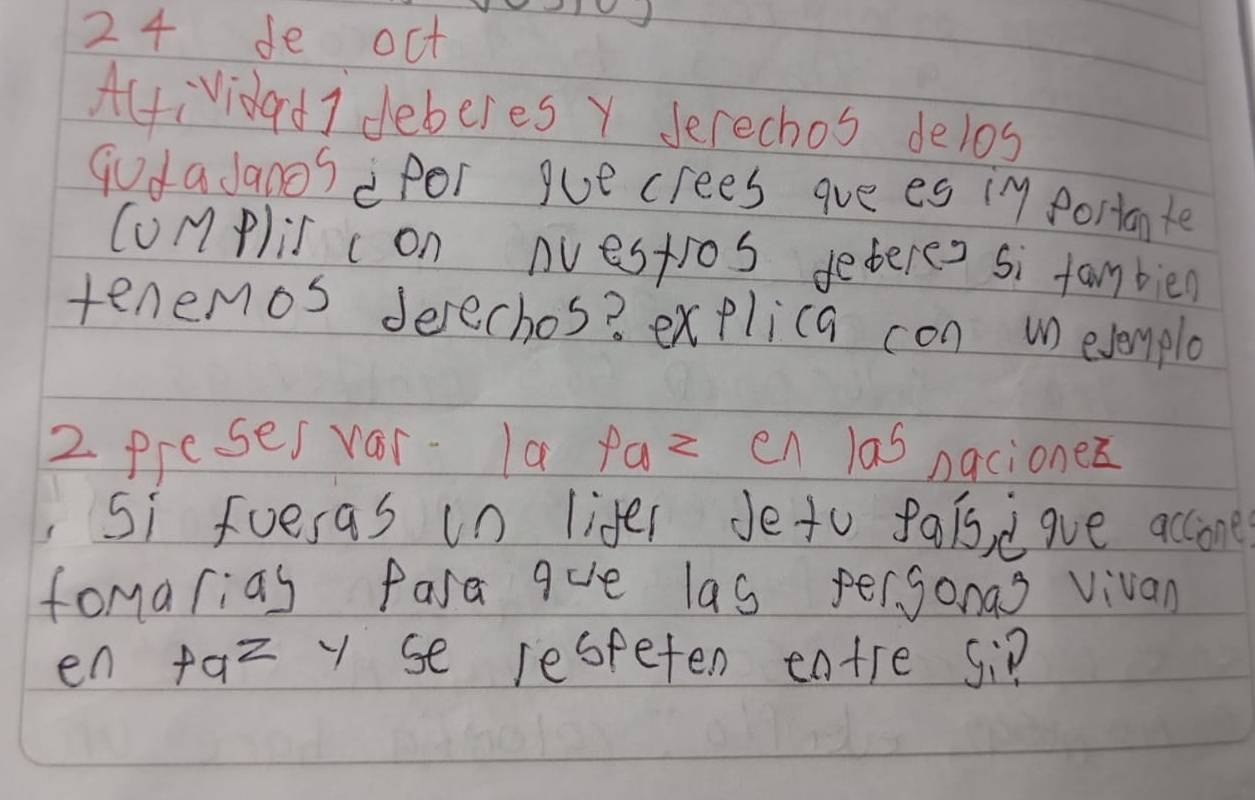 24 de oct
Actividad 1 deberes y derechos de los
Ciudadanos ¿Por que crees que es importante
cumplir con nuestros deberes si tambien
tenemos derechos? explica con un ejemplo
2 preservar la paz en las naciones
. Si fueras un lider de tu país, ¿que accione
tomarias para que las personas vivan
en paz y se respeten entre si?